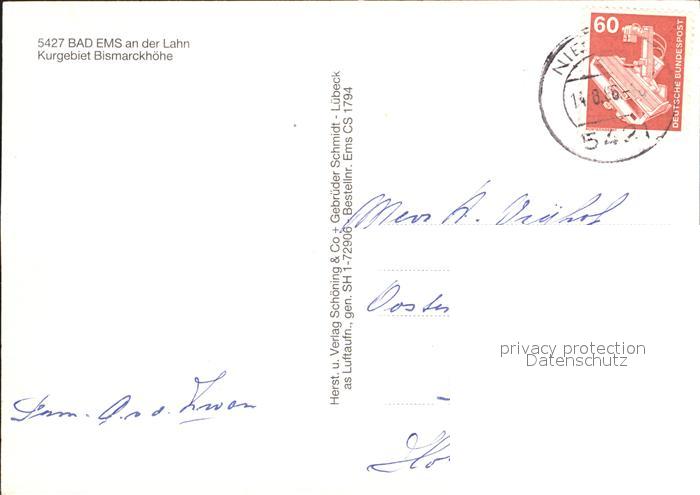 5427 BAD EMS an der Lahn
Kurgebiet Bismarckhöhe
Herst. u. Verlag Schöning & Co + Gebrüder Schmidt - Lübeck
as Luftaufn., gen. SH 1-72906 - Bestellnr. Ems CS 1794
60
DEUTSCHE BUNDESPOST
NIE
14.8.
542
Mevr A.
Ooste
Ho
Fam. v.d. Zwan
privacy protection
Datenschutz